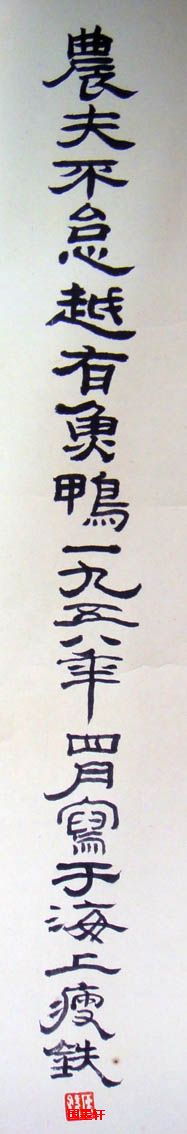 農夫不怠越有魚鴨一九五八年四月寫于海上瘦鉄
国墨轩